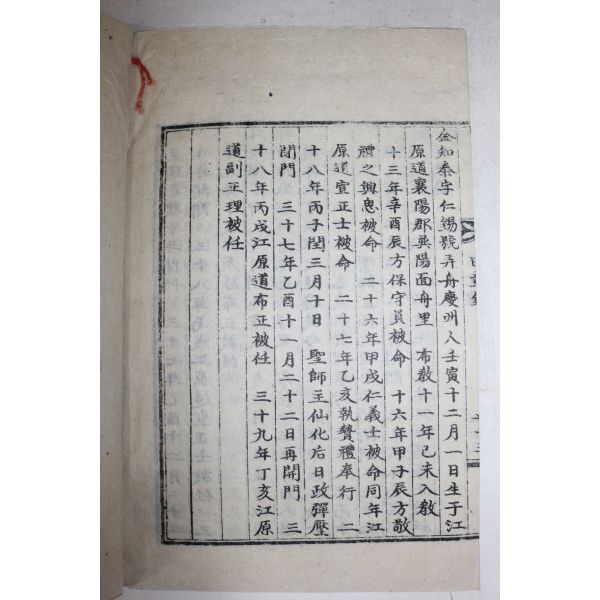 金知泰字仁錫號弄舟慶明人壬寅十二月一日生于江
原道襄陽郡巽陽面舟里 布教十一年己未入教
十三年辛酉辰方保守員被命 十六年甲子辰方敬
禮之興恩被命 二十六年甲戌仁義士被命同年江
原道宣正士被命 二十七年乙亥執贊禮奉行 二
十八年丙子閏三月十日 聖師主仙化后日政彈壓
閉門 三十七年乙酉十一月二十二日再開門 三
十八年丙戌江原道布正被任 三十九年丁亥江原
道副正理被任